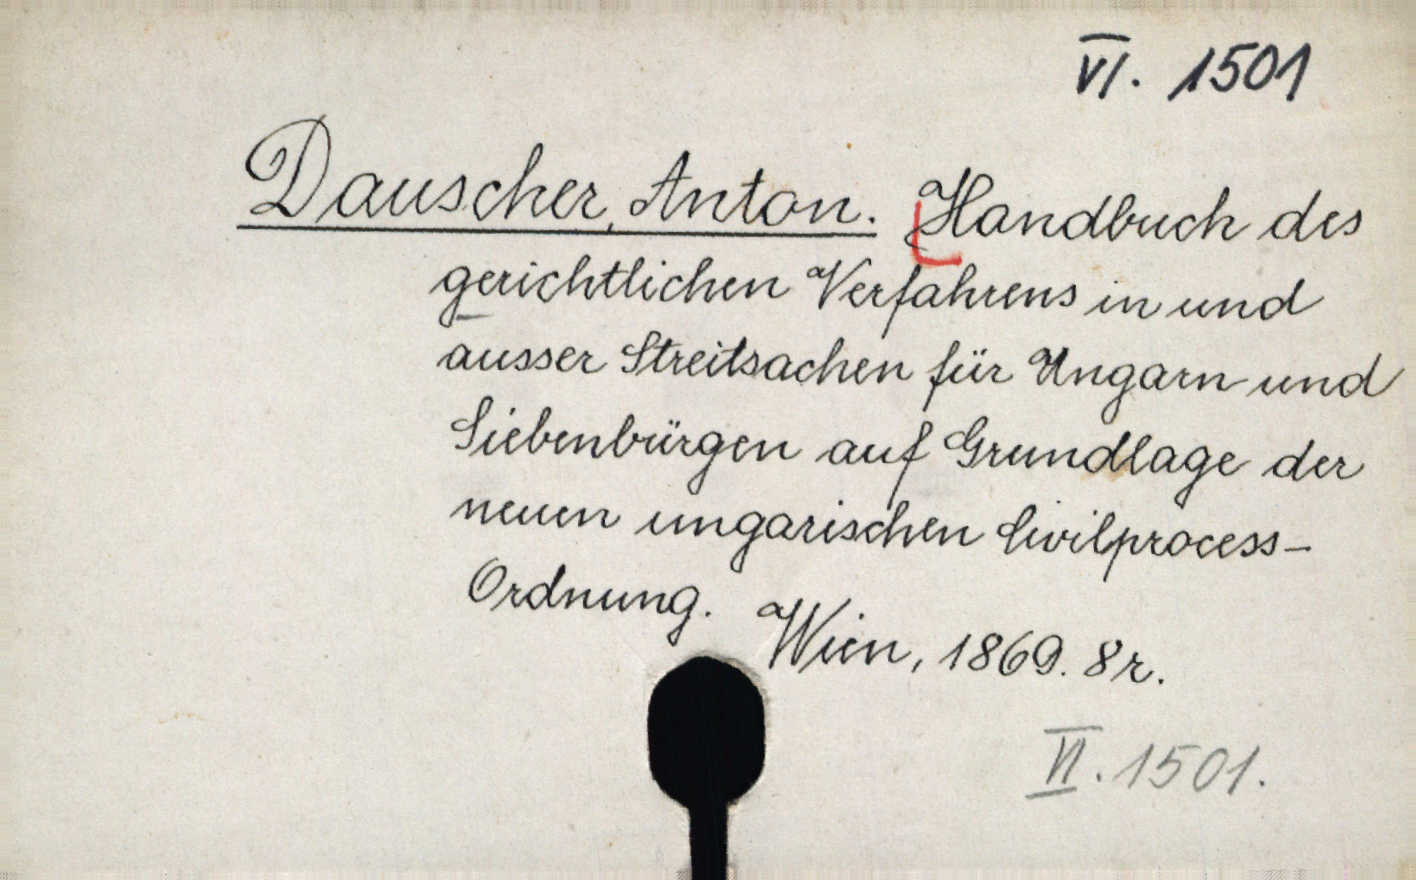 VI. 1501
Dauscher, Anton. Handbuch des
gerichtlichen Verfahrens in und
ausser Streitsachen für Ungarn und
Siebenbürgen auf Grundlage der
neuen ungarischen Civilprocess-
Ordnung. Wien, 1869. 8r.
VI. 1501.